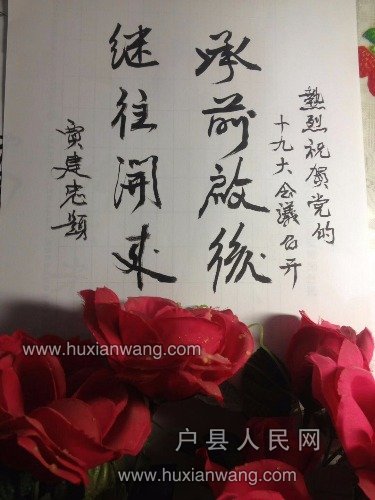 熱烈祝贺党的
十九大会議召开
承前啟後
继往開来
贾建忠题
www.huxianwang.com
户县人民网
www.huxianwang.com